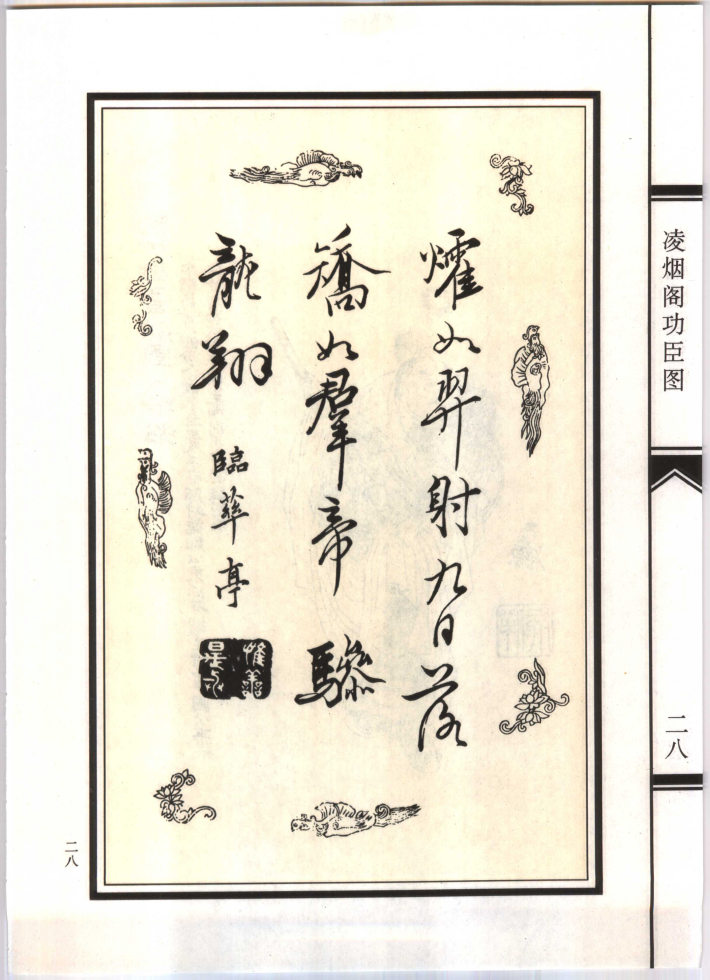 㸌如羿射九日落
矯如羣帝驂
龍翔
臨華亭
惟善
凌烟阁功臣图
二八
二八